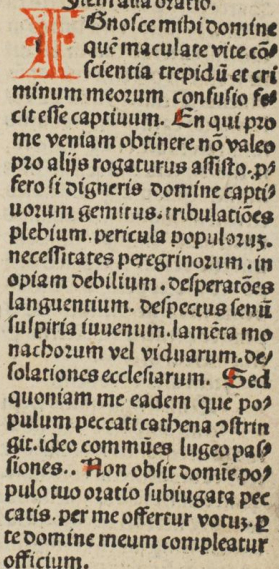 Item alia oratio.
IGnosce mihi domine
quē maculate vite cō⸗
scientia trepidū et cri
minum meorum confusio fe⸗
cit esse captiuum. En qui pro
me veniam obtinere nō valeo
pro alijs rogaturus assisto.p⸗
fero si digneris domine capti⸗
uorum gemitus.tribulatiōes
plebium.pericula populoruꝫ.
necessitates peregrinorum.in
opiam debilium.desperatōes
languentium.defectus senū
suspiria iuuenum.lamēta mo
nachorum vel viduarum.de⸗
solationes ecclesiarum. Sed
quoniam me eadem que po⸗
pulum peccati cathena ꝯstrin
git.ideo commūes lugeo pas⸗
siones.. Non obsit domīe po⸗
pulo tuo oratio subiugata pec
catis.per me offertur votuꝫ.ꝑ
te domine meum compleatur
officium.